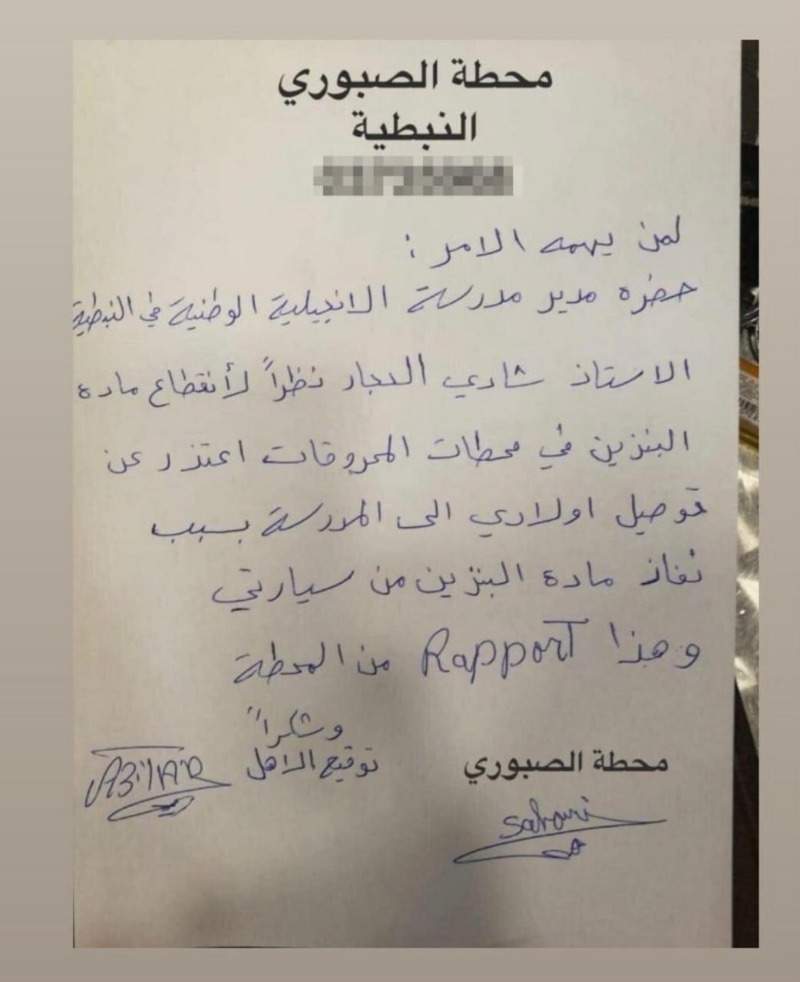 محطة الصبوري
النبطية
لمن يهمه الامر :
حضرة مدير مدرسة الانجيلية الوطنية في النبطية
الاستاذ شادي الحجار نظراً لأنقطاع مادة
البنزين في محطات المحروقات اعتذر عن
توصيل اولادي الى المدرسة بسبب
نفاذ مادة البنزين من سيارتي
وهذا Rapport من المحطة
وشكراً
توقيع الاهل
محطة الصبوري